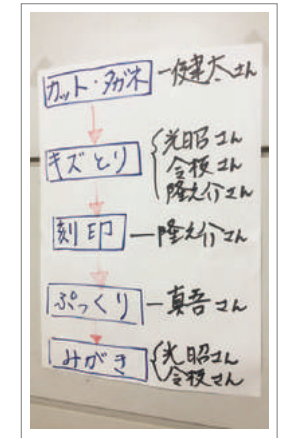 カット・タガネ ー 健太さん
キズとり 光昭さん
令枝さん
隆之介さん
刻印 ー 隆之介さん
ぷっくり ー 真吾さん
みがき 光昭さん
令枝さん